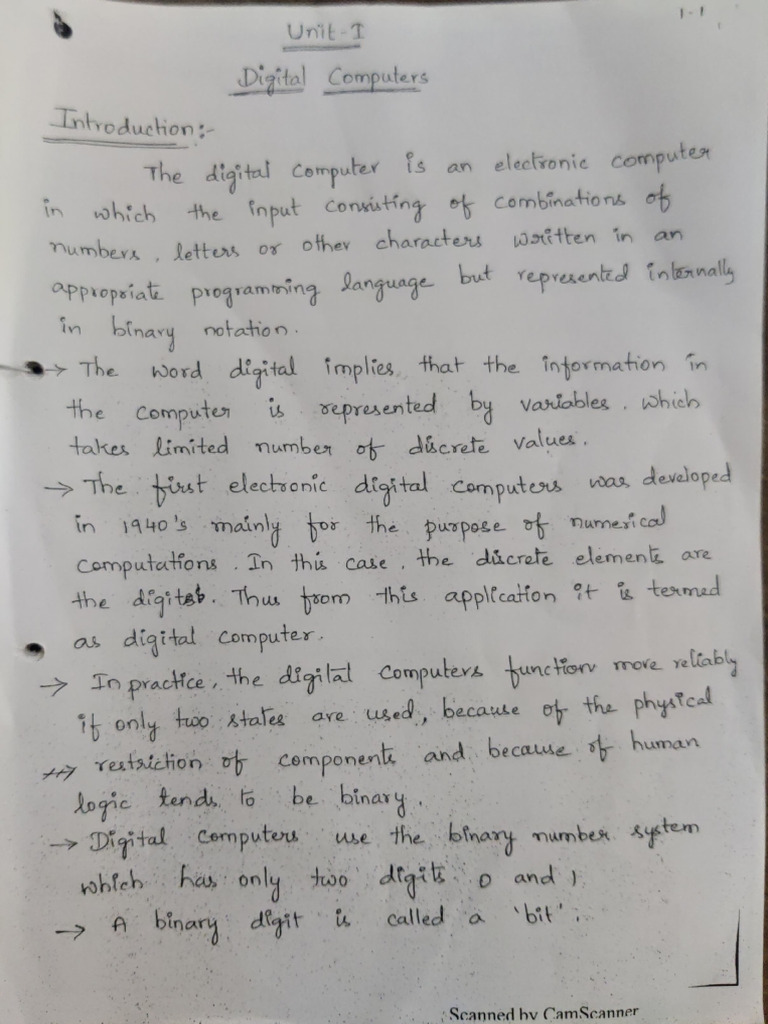 1-1
Unit-I
Digital Computers
Introduction:-
The digital computer is an electronic computer
in which the input consisting of combinations of
numbers, letters or other characters written in an
appropriate programming language but represented internally
in binary notation.
→ The word digital implies that the information in
the computer is represented by variables. which
takes limited number of discrete values.
→ The first electronic digital computers was developed
in 1940's mainly for the purpose of numerical
computations. In this case, the discrete elements are
the digits. Thus from this application it is termed
as digital computer.
→ In practice, the digital computers function more reliably
if only two states are used, because of the physical
restriction of components and because of human
logic tends to be binary.
→ Digital computers use the binary number system
which has only two digits 0 and 1
→ A binary digit is called a 'bit'.
Scanned by CamScanner